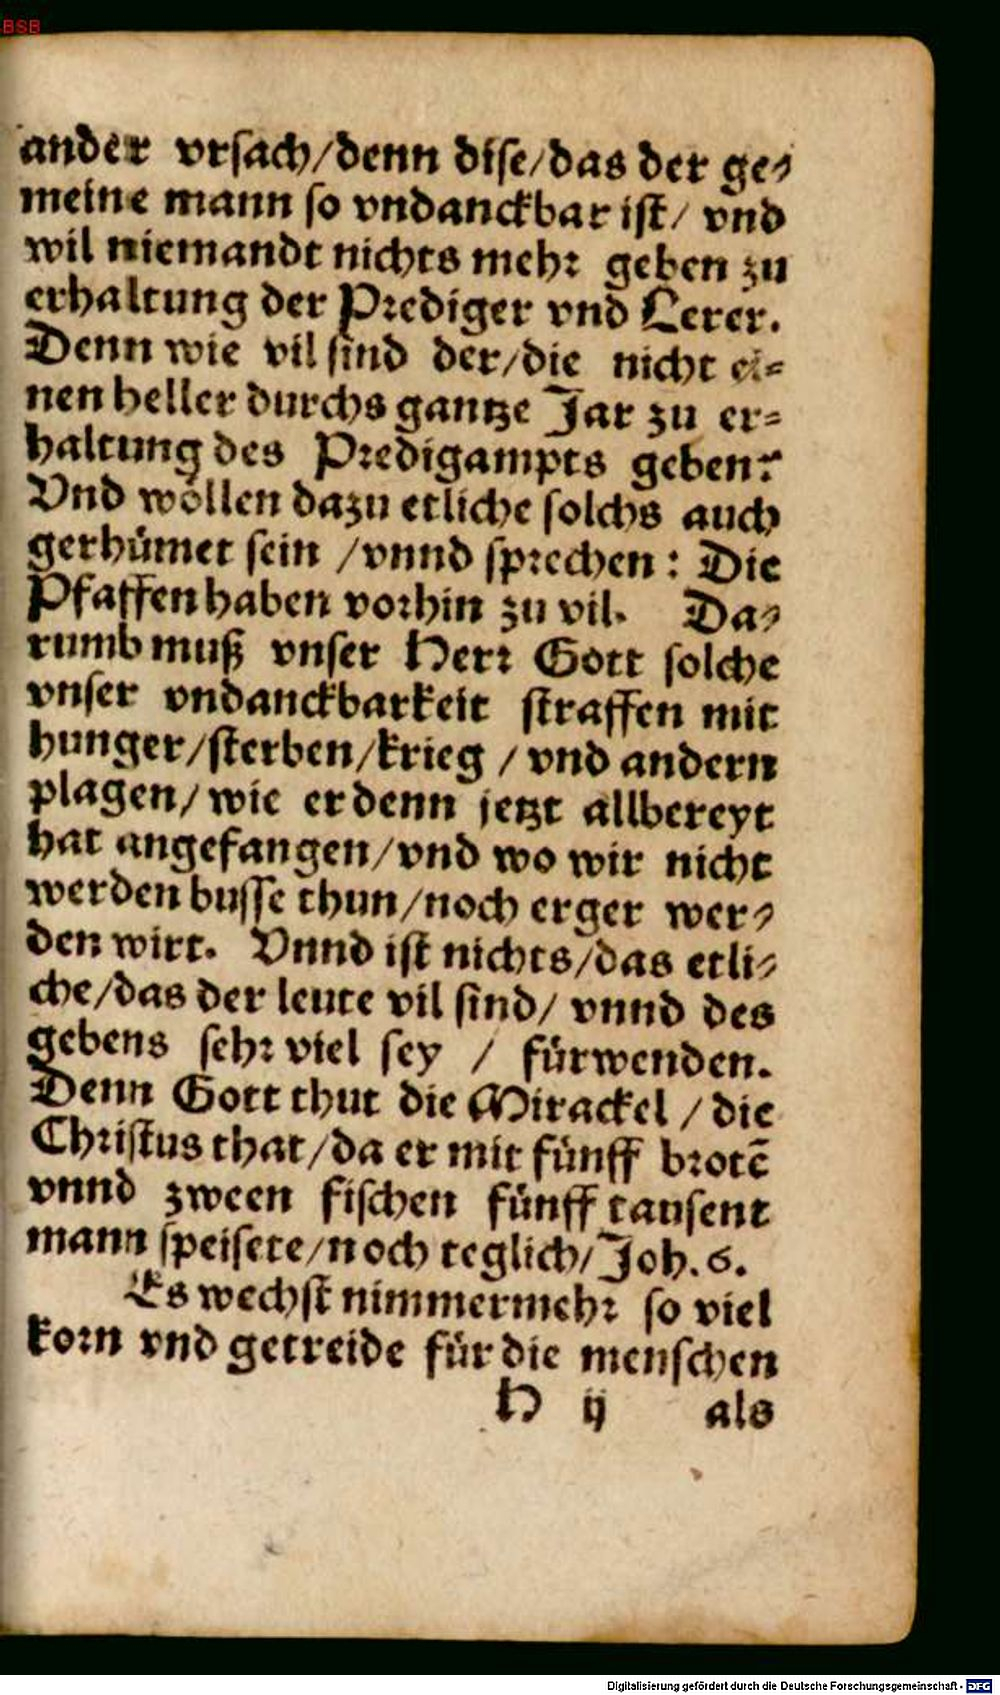 BSB
ander vrsach/denn dise/das der ge-
meine mann so vndanckbar ist/ vnd
wil niemandt nichts mehr geben zu
erhaltung der Prediger vnd Lerer.
Denn wie vil sind der/die nicht ei-
nen heller durchs gantze Jar zu er-
haltung des Predigampts geben?
Vnd wöllen dazu etliche solchs auch
gerhümet sein /vnnd sprechen: Die
Pfaffen haben vorhin zu vil. Da-
rumb muß vnser Herr Gott solche
vnser vndanckbarkeit straffen mit
hunger/sterben/krieg / vnd andern
plagen/ wie er denn jetzt allbereyt
hat angefangen/vnd wo wir nicht
werden busse thun/noch erger wer-
den wirt. Vnnd ist nichts/das etli-
che/das der leute vil sind/ vnnd des
gebens sehr viel sey / fürwenden.
Denn Gott thut die Mirackel / die
Christus that/da er mit fünff brotē
vnnd zween fischen fünff tausent
mann speisete/noch teglich/Joh.6.
Es wechst nimmermehr so viel
korn vnd getreide für die menschen
H ij als
Digitalisierung gefördert durch die Deutsche Forschungsgemeinschaft - DFG